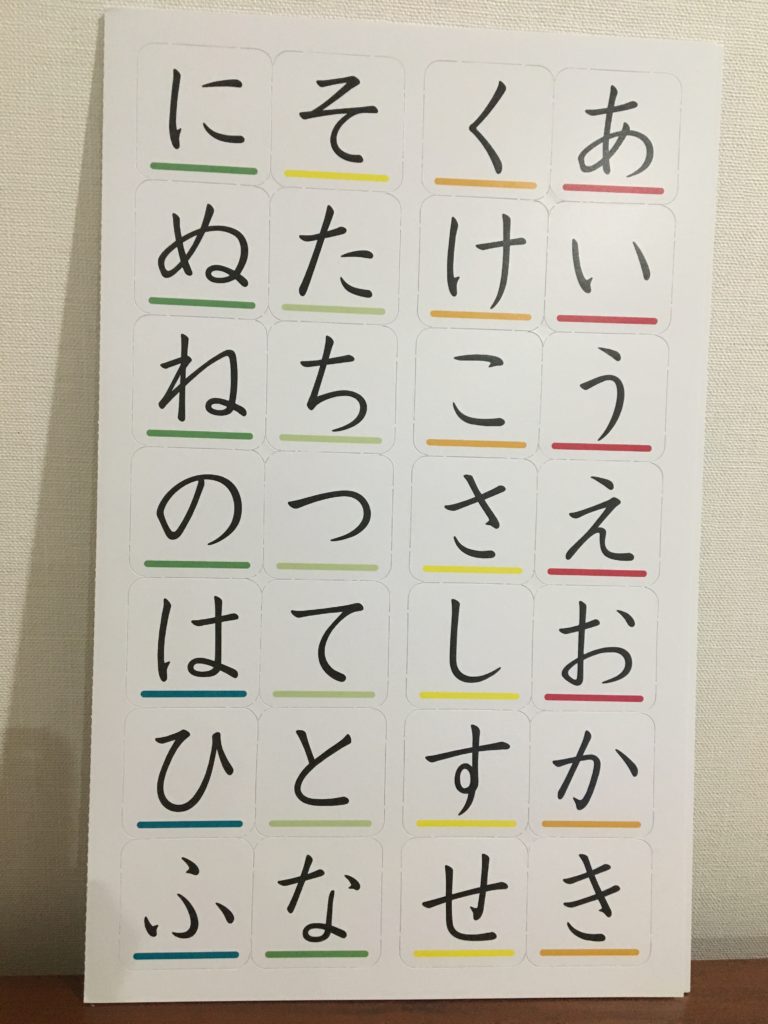 あ
い
う
え
お
か
き
く
け
こ
さ
し
す
せ
そ
た
ち
つ
て
と
な
に
ぬ
ね
の
は
ひ
ふ